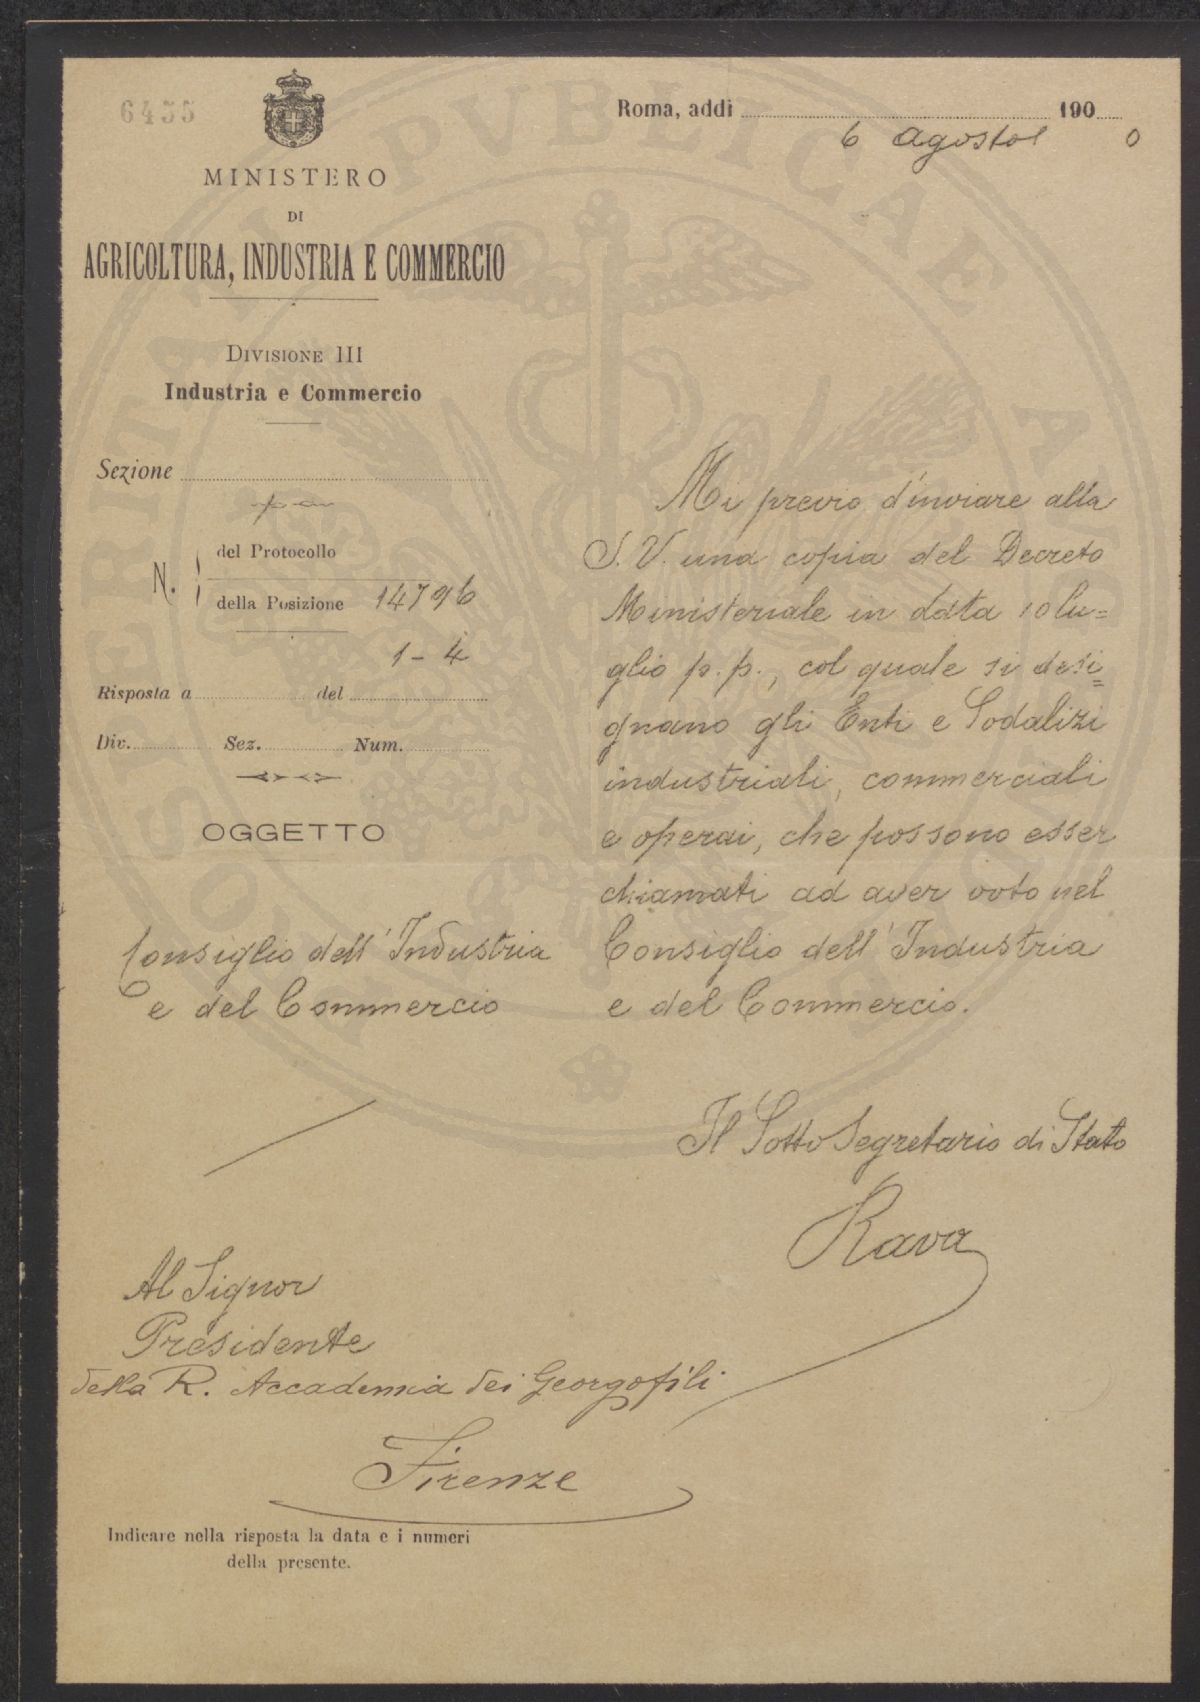 6435
MINISTERO
DI
AGRICOLTURA, INDUSTRIA E COMMERCIO
Divisione III
Industria e Commercio
Sezione
N.
del Protocollo
della Posizione 14796
1-4
Risposta a del
Div. Sez. Num.
OGGETTO
Consiglio dell'Industria
e del Commercio
Al Signor
Presidente
della R. Accademia dei Georgofili
Firenze
Indicare nella risposta la data e i numeri
della presente.
Roma, addì 190
6 Agosto 0
Mi previo d'inviare alla
S. V. una copia del Decreto
Ministeriale in data 10 lu=
glio p. p., col quale si desi=
gnano gli Enti e Sodalizi
industriali, commerciali
e operai, che possono esser
chiamati ad aver voto nel
Consiglio dell'Industria
e del Commercio.
Il Sotto Segretario di Stato
Rava